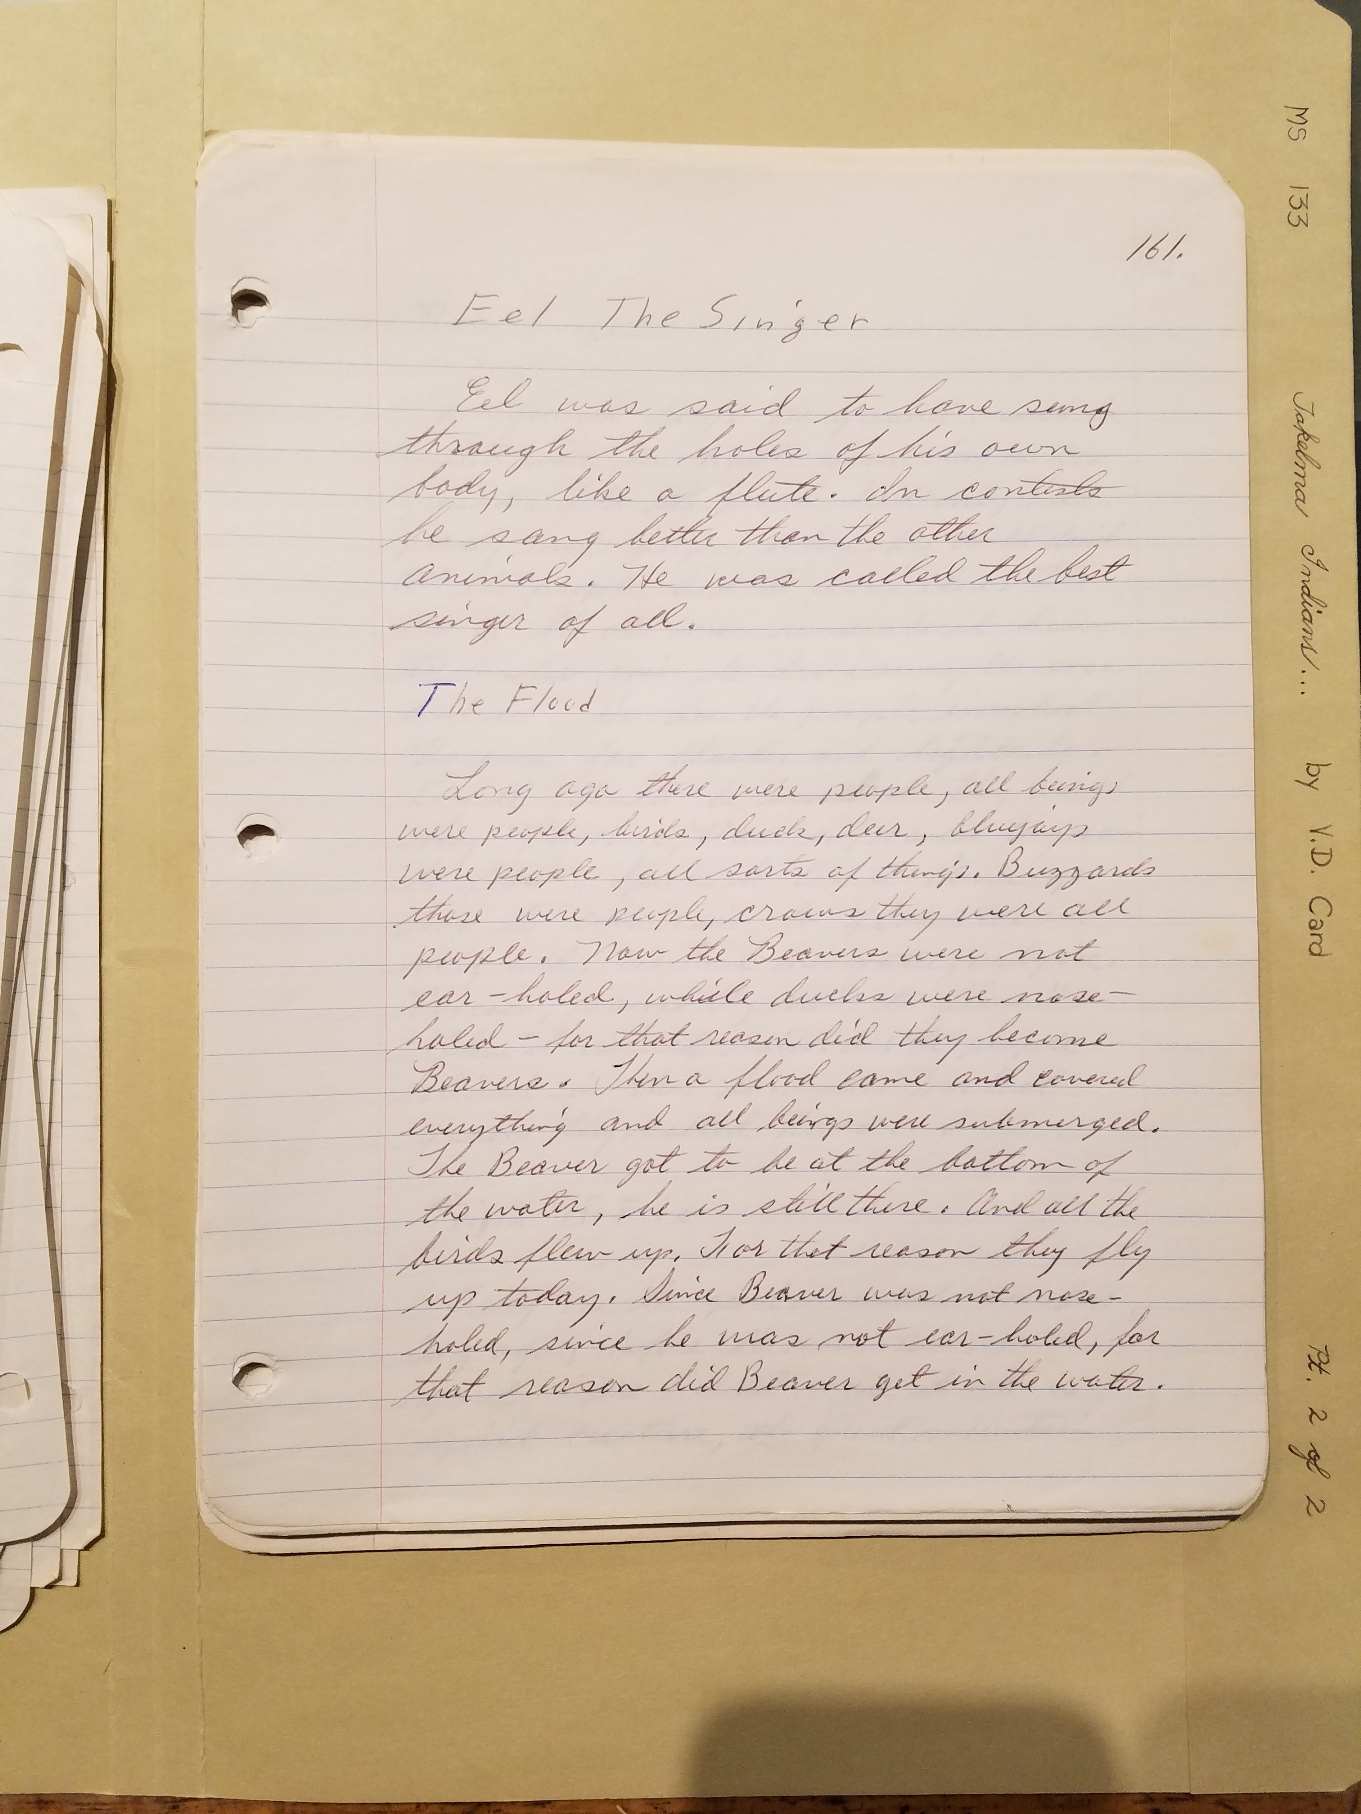 161.
Eel The Singer
Eel was said to have sung
through the holes of his own
body, like a flute. In contests
he sang better than the other
animals. He was called the best
singer of all.
The Flood
Long ago there were people, all beings
were people, birds, duck, deer, bluejays
were people, all sorts of things. Buzzards
those were people, crows they were all
people. Now the Beavers were not
ear-holed, while ducks were nose-
holed - for that reason did they become
Beavers. Then a flood came and covered
everything and all beings were submerged.
The Beaver got to be at the bottom of
the water, he is still there. And all the
birds flew up. For that reason they fly
up today. Since Beaver was not nose-
holed, since he was not ear-holed, for
that reason did Beaver get in the water.
MS 133 Takelma Indians... by V.D. Card Pt. 2 of 2